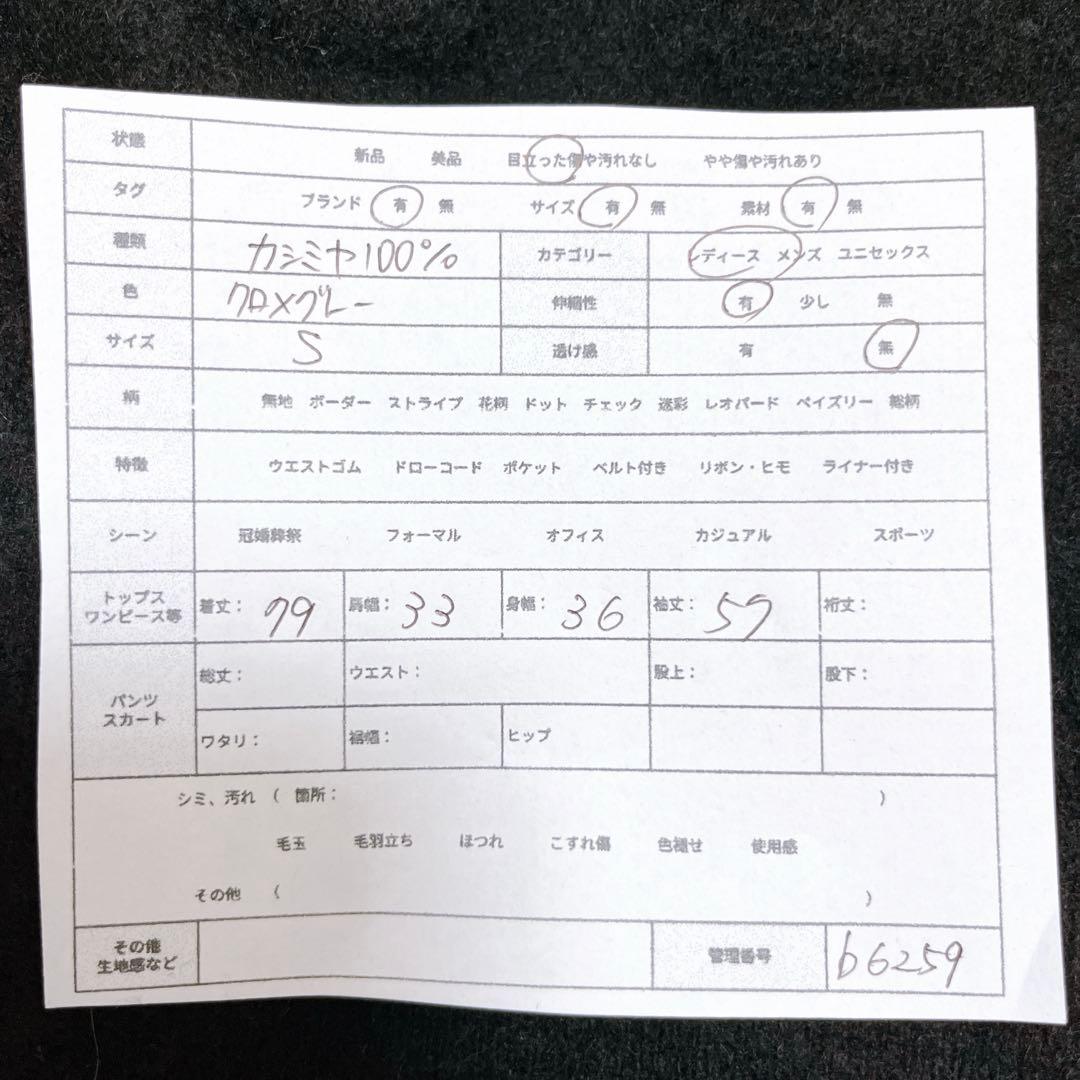 状態 新品 美品 目立った傷や汚れなし やや傷や汚れあり
タグ ブランド 有 無 サイズ 有 無 素材 有 無
種類 カシミヤ100% カテゴリー レディース メンズ ユニセックス
色 クロ×グレー 伸縮性 有 少し 無
サイズ S 透け感 有 無
柄 無地 ボーダー ストライプ 花柄 ドット チェック 迷彩 レオパード ペイズリー 総柄
特徴 ウエストゴム ドローコード ポケット ベルト付き リボン・ヒモ ライナー付き
シーン 冠婚葬祭 フォーマル オフィス カジュアル スポーツ
トップス
ワンピース等 着丈: 79 肩幅: 33 身幅: 36 袖丈: 57 裄丈:
パンツ
スカート 総丈: ウエスト: 股上: 股下:
ワタリ: 裾幅: ヒップ
シミ、汚れ ( 箇所: )
毛玉 毛羽立ち ほつれ こすれ傷 色褪せ 使用感
その他 ( )
その他
生地感など 管理番号 b6259